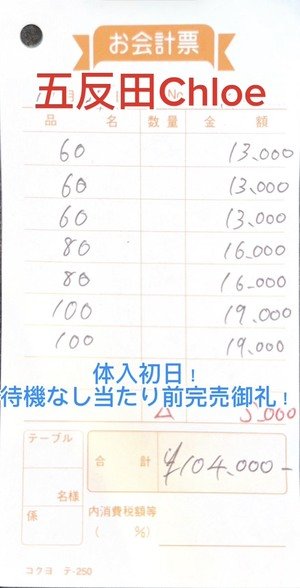 お会計票
五反田Chloe
品 名 数量 金 額
60 13,000
60 13,000
60 13,000
80 16,000
80 16,000
100 19,000
100 19,000
体入初日！
待機なし当たり前完売御礼！
5,000
テーブル
合 計 ¥104,000-
名様
係
内消費税額等
( %)
コクヨ テ-250